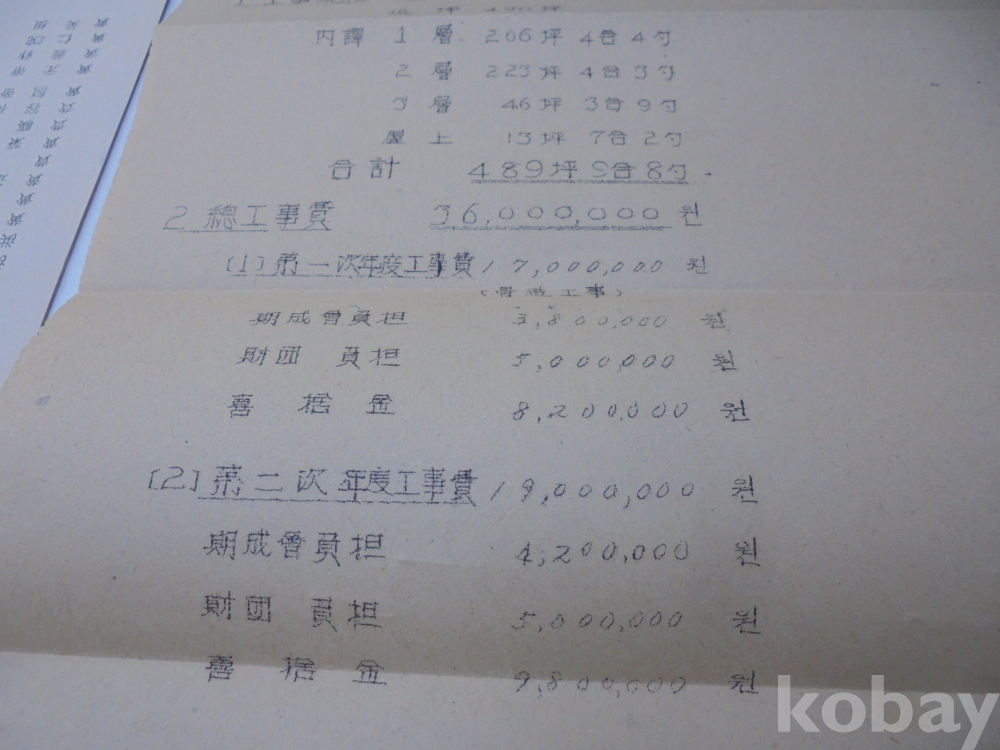 內譯 1 層 206坪 4合 4勺
2 層 223坪 4合 3勺
3 層 46坪 3合 9勺
屋上 13坪 7合 2勺
合計 489坪 9合 8勺
2 總工事費 36,000,000 원
(1) 第一次年度工事費 17,000,000 원
(骨造工事)
期成會負担 3,800,000 원
財団 負担 5,000,000 원
喜捨金 8,200,000 원
(2) 第二次年度工事費 19,000,000 원
期成會負担 4,200,000 원
財団 負担 5,000,000 원
喜捨金 9,800,000 원
kobay